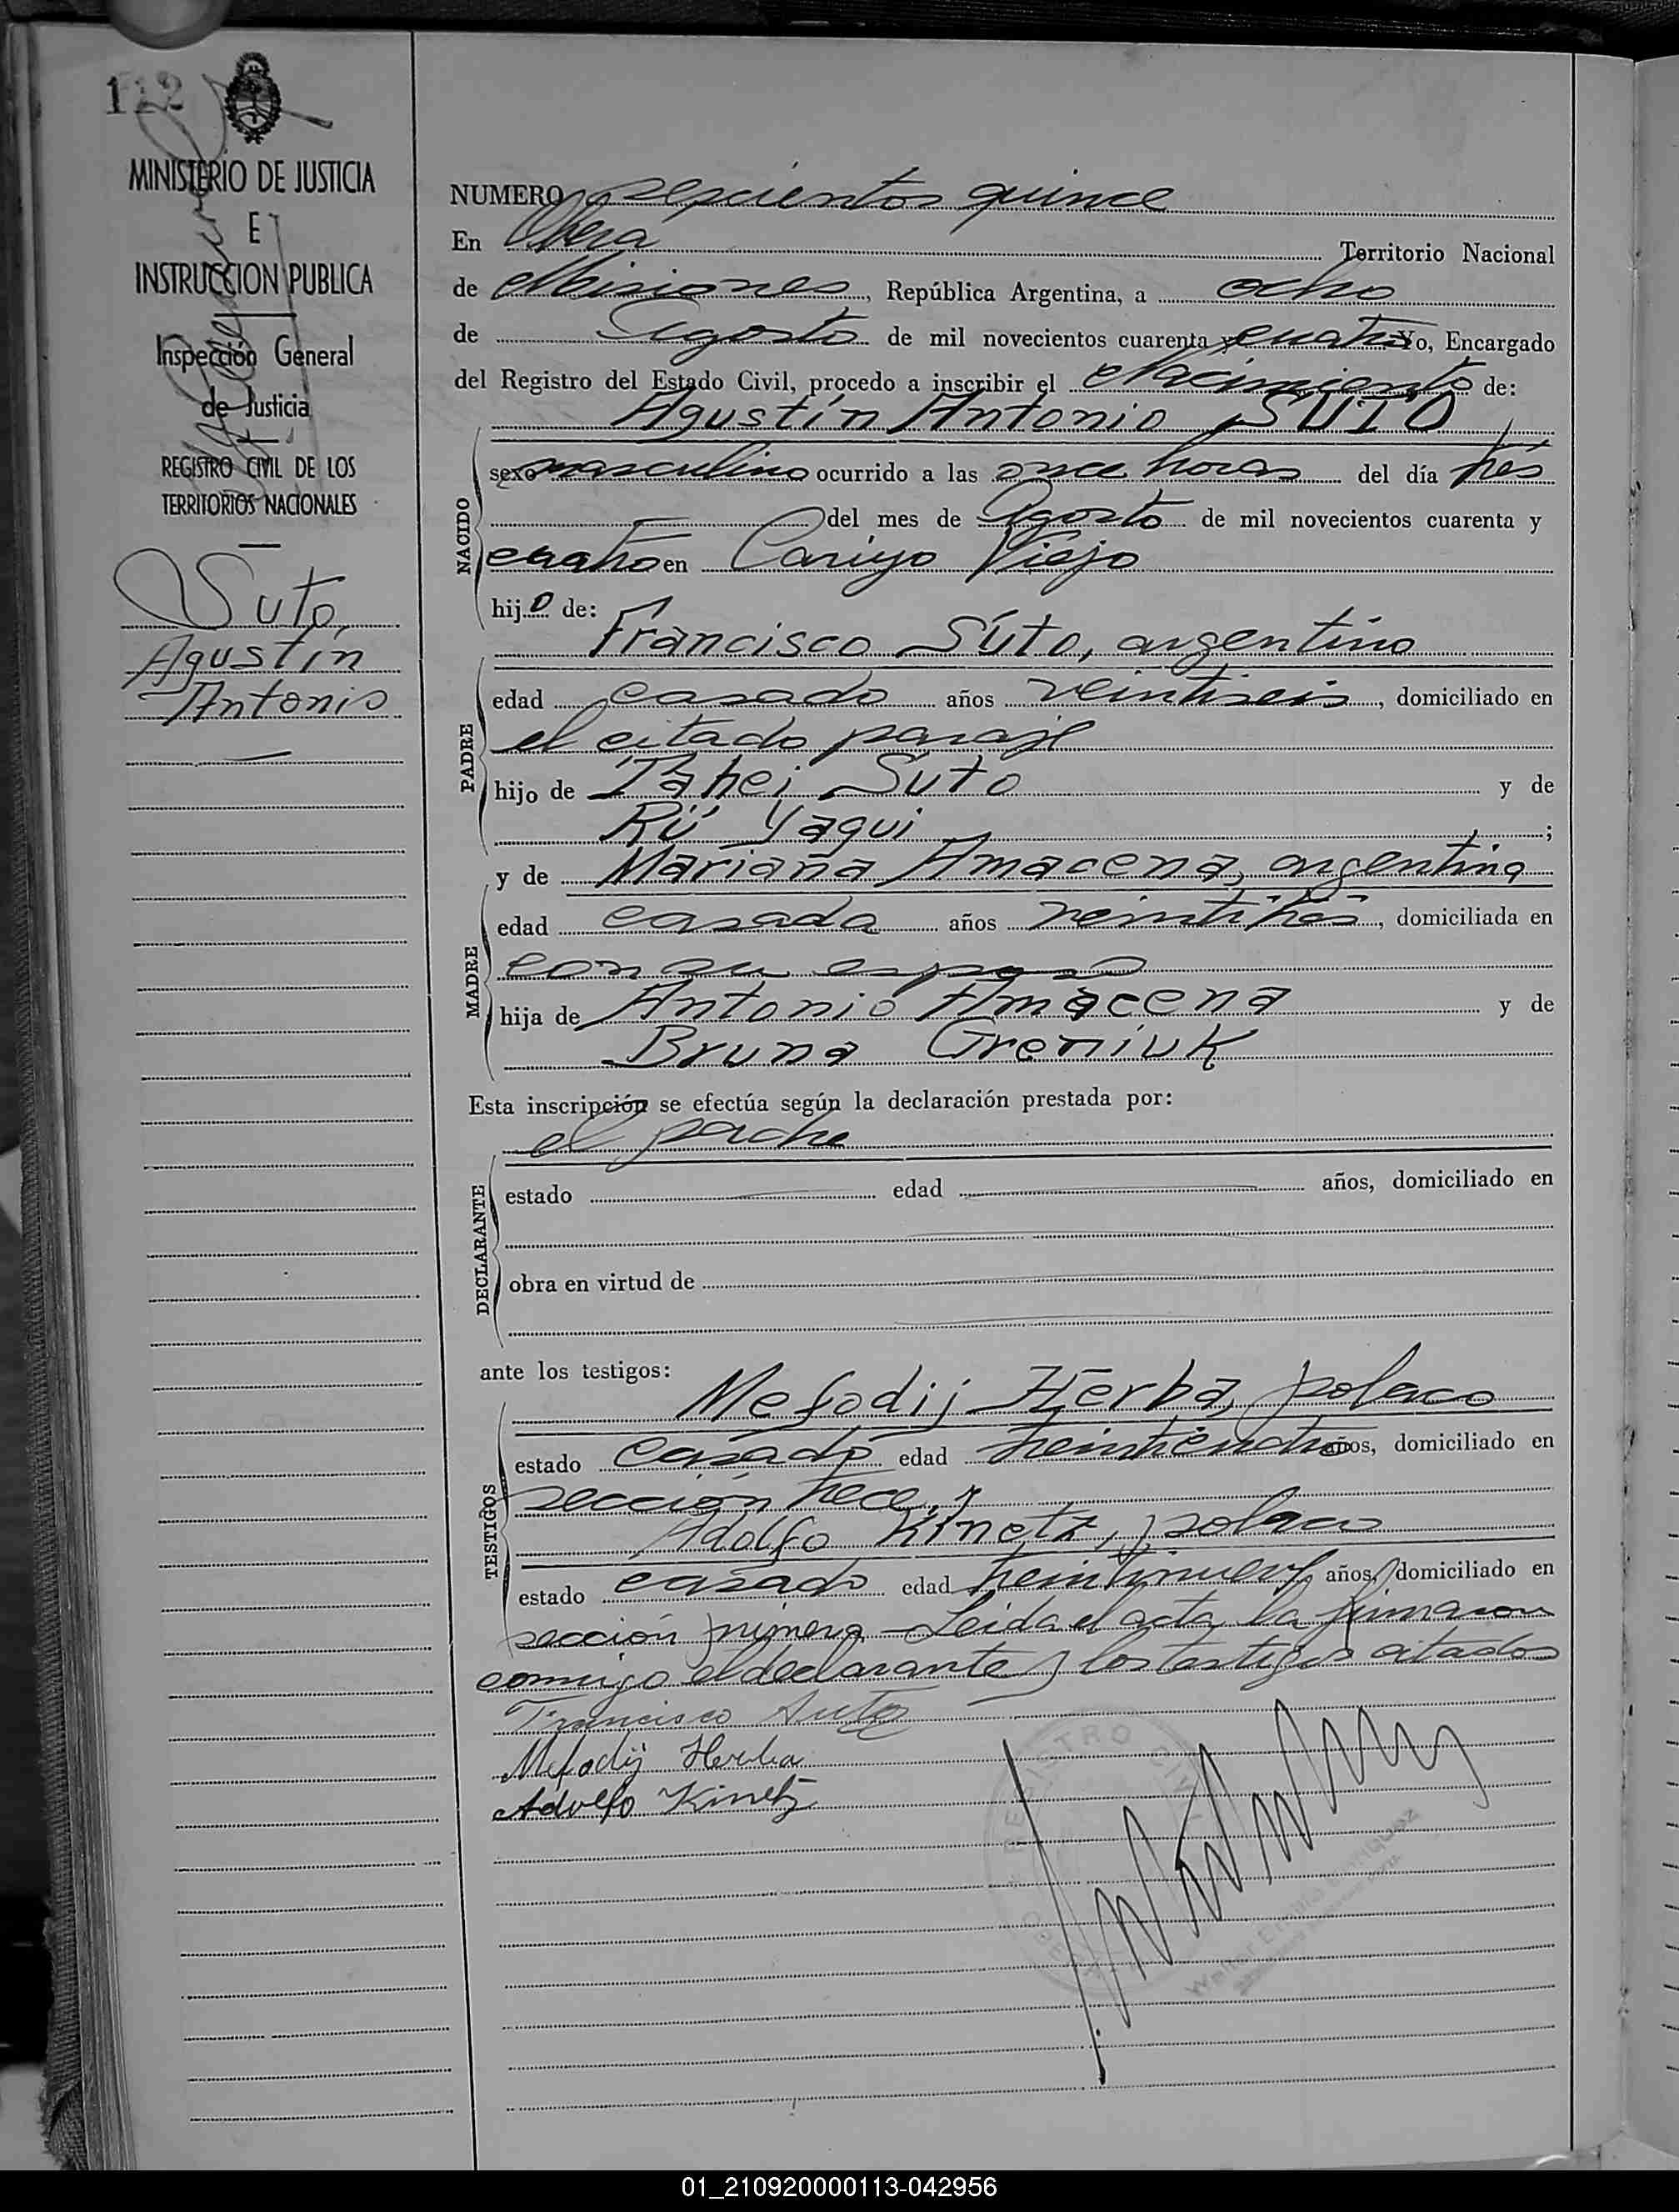 112
MINISTERIO DE JUSTICIA
E
INSTRUCCION PUBLICA
Inspección General
de Justicia
REGISTRO CIVIL DE LOS
TERRITORIOS NACIONALES
Suto,
Agustín
Antonio
NUMERO seiscientos quince
En Obera Territorio Nacional
de Misiones, República Argentina, a ocho
de Agosto de mil novecientos cuarenta y cuatro Yo, Encargado
del Registro del Estado Civil, procedo a inscribir el Nacimiento de:
Agustín Antonio SUTO
NACIDO
sexo masculino ocurrido a las once horas del día tres
del mes de Agosto de mil novecientos cuarenta y
cuatro en Viejo
hijo de:
Francisco Súto, argentino
PADRE
edad casado años veintiseis, domiciliado en
el citado paraje
hijo de Tahei Suto y de
Rü Yagui;
y de Mariana Amacena, argentina
MADRE
edad casada años veintitrés, domiciliada en
con su esposo
hija de Antonio Amacena y de
Bruna Greniuk
Esta inscripción se efectúa según la declaración prestada por:
el padre
DECLARANTE
estado edad años, domiciliado en
obra en virtud de
ante los testigos:
Mefodij Herba, polaco
TESTIGOS
estado casado edad años, domiciliado en
sección trece, y
Adolfo Kinetz, polaco
estado casado edad treintinueve años, domiciliado en
sección primera - Leida el acta, la firmaron
conmigo el declarante y los testigos citados
Francisco Suto
Mefodij Herba
Adolfo Kinetz
REGISTRO CIVIL
01_210920000113-042956